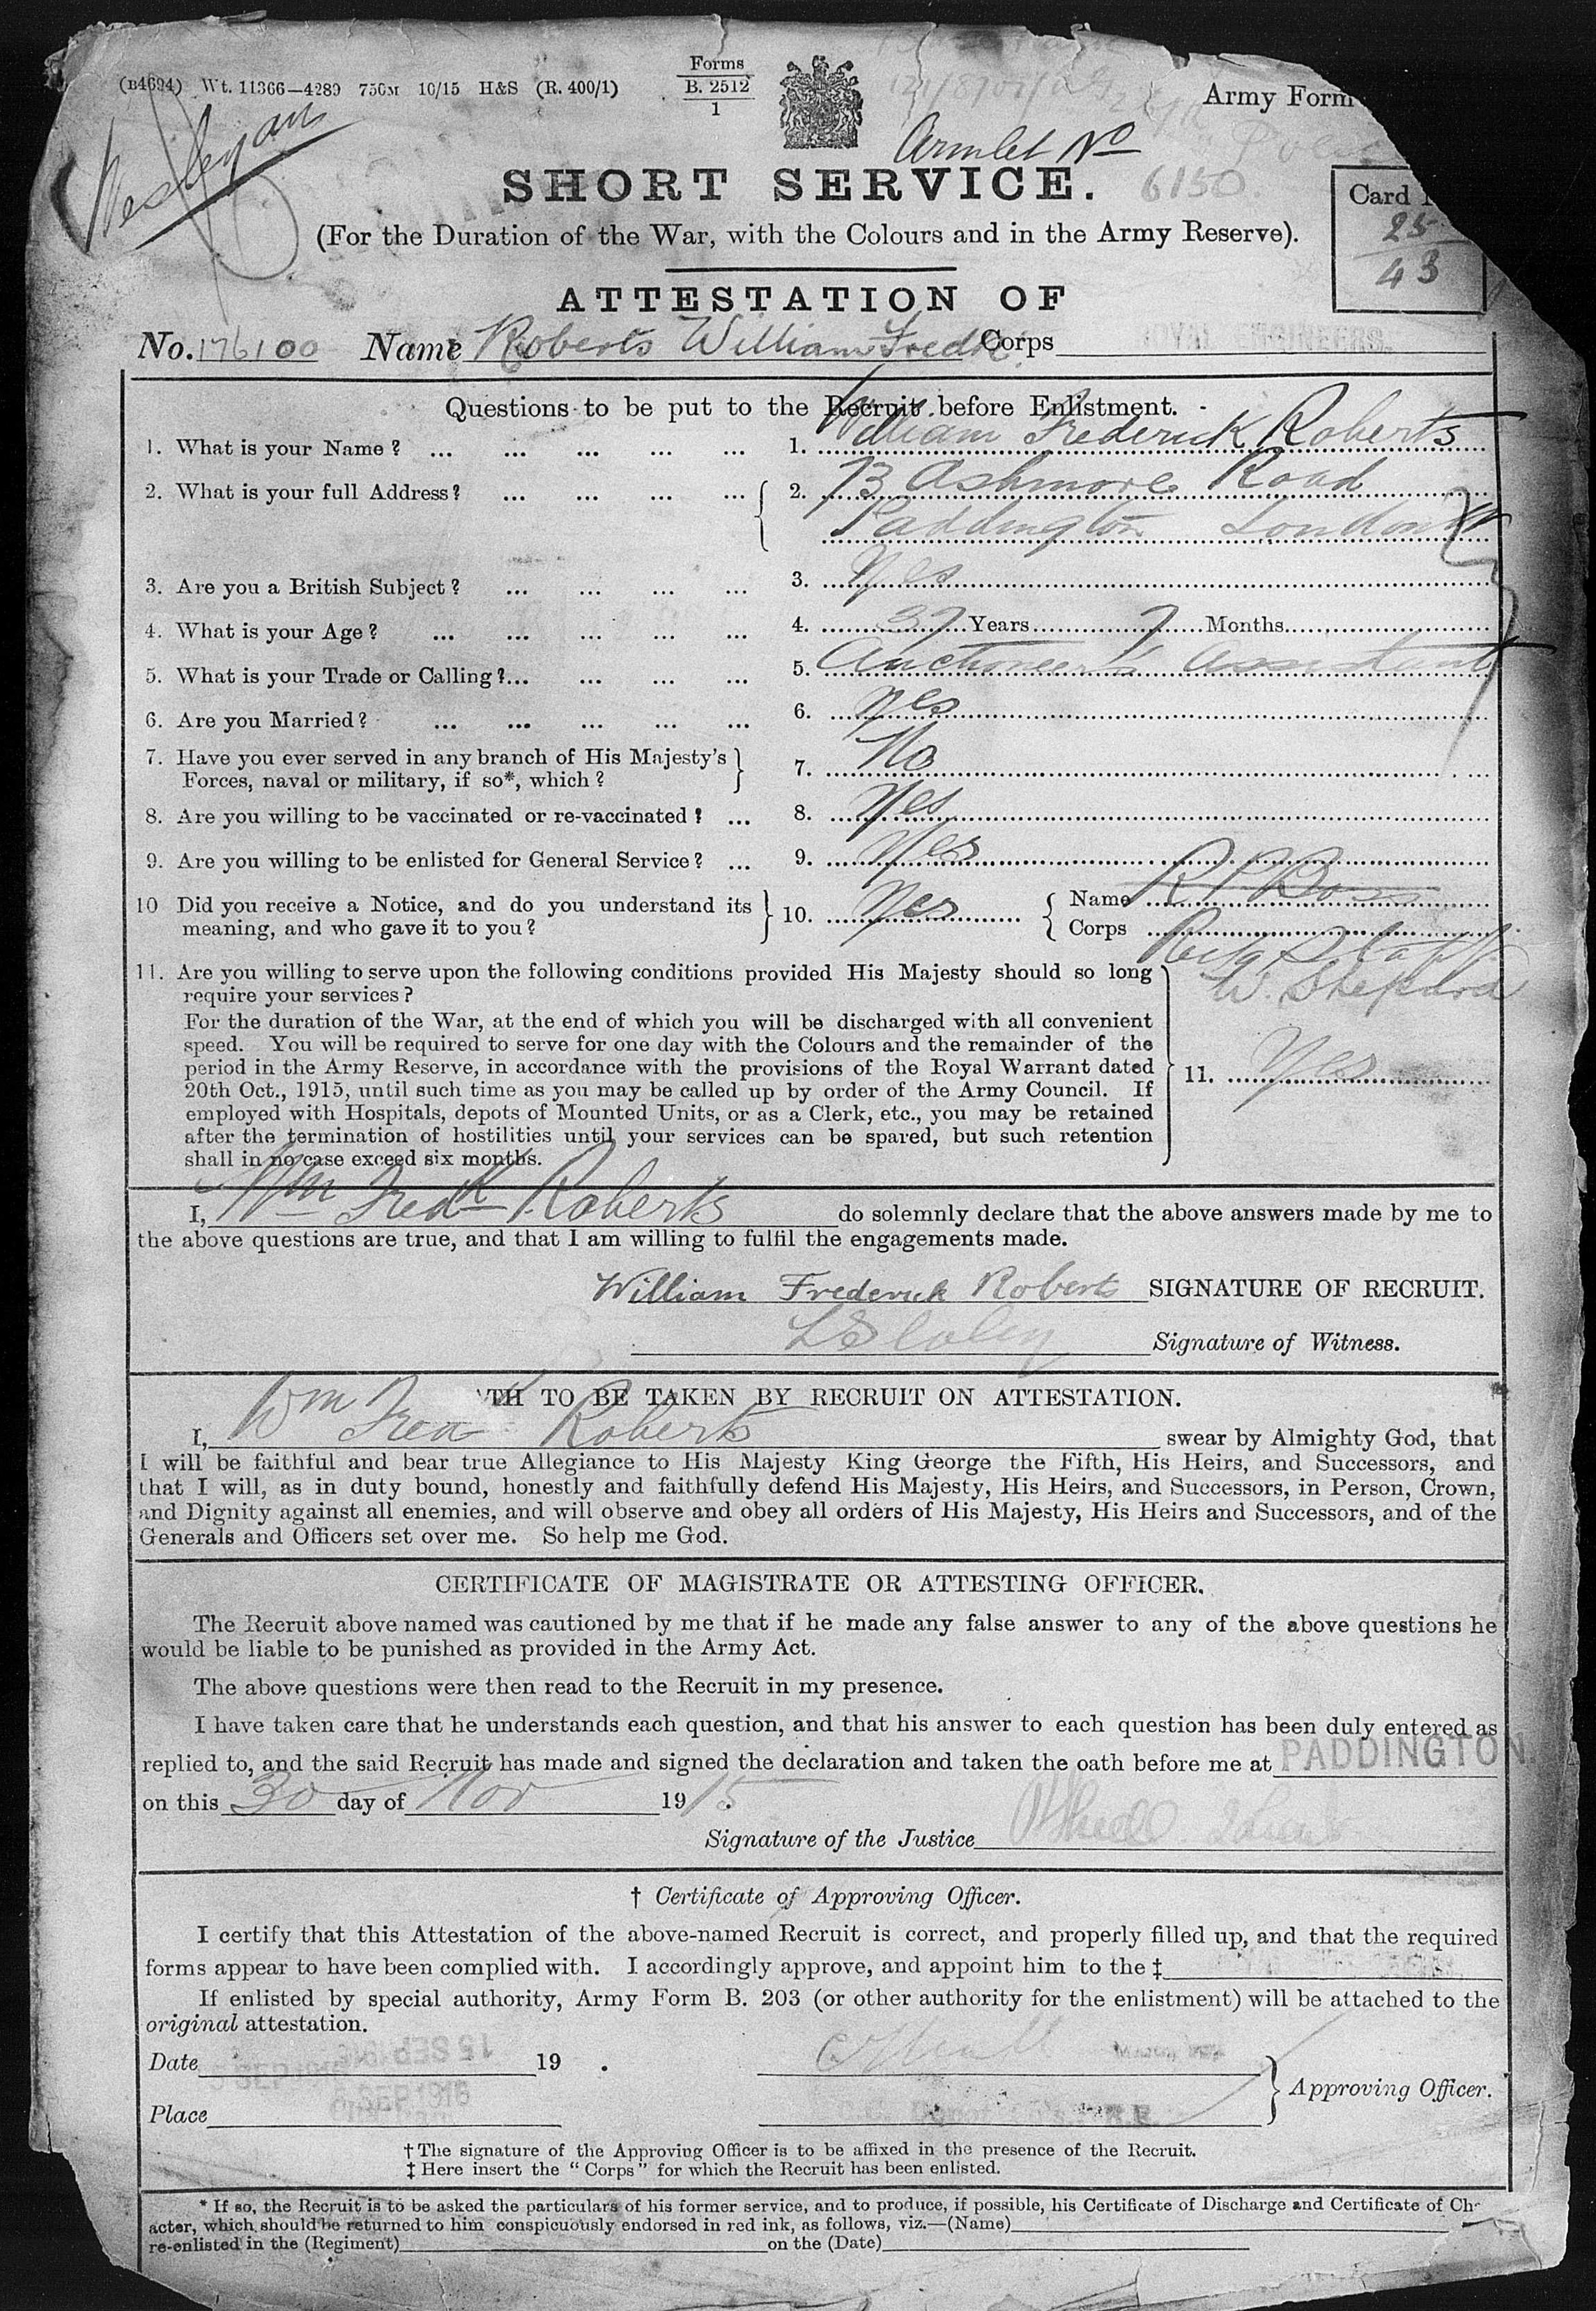 (B4694) Wt. 11366—4289 750M 10/15 H&S (R. 400/1)
Forms
B. 2512
1
Army Form
Wesleyan
Armlet No
6150
SHORT SERVICE.
Card
25
43
(For the Duration of the War, with the Colours and in the Army Reserve).
ATTESTATION OF
No. 176100 Name Roberts William Fredk Corps ROYAL ENGINEERS.
Questions to be put to the Recruit before Enlistment.
1. What is your Name? ... ... ... ... ... 1. William Frederick Roberts
2. What is your full Address? ... ... ... ... 2. 73 Ashmore Road
Paddington London W
3. Are you a British Subject? ... ... ... ... 3. Yes
4. What is your Age? ... ... ... ... ... 4. 37 Years 7 Months
5. What is your Trade or Calling?... ... ... ... 5. Auctioneer's Assistant
6. Are you Married? ... ... ... ... ... 6. Yes
7. Have you ever served in any branch of His Majesty's
Forces, naval or military, if so*, which? 7. No
8. Are you willing to be vaccinated or re-vaccinated? ... 8. Yes
9. Are you willing to be enlisted for General Service? ... 9. Yes
10 Did you receive a Notice, and do you understand its
meaning, and who gave it to you? 10. Yes Name
Corps
W. Shepherd
11. Are you willing to serve upon the following conditions provided His Majesty should so long
require your services?
For the duration of the War, at the end of which you will be discharged with all convenient
speed. You will be required to serve for one day with the Colours and the remainder of the
period in the Army Reserve, in accordance with the provisions of the Royal Warrant dated
20th Oct., 1915, until such time as you may be called up by order of the Army Council. If
employed with Hospitals, depots of Mounted Units, or as a Clerk, etc., you may be retained
after the termination of hostilities until your services can be spared, but such retention
shall in no case exceed six months.
11. Yes
I, Wm Fredk Roberts do solemnly declare that the above answers made by me to
the above questions are true, and that I am willing to fulfil the engagements made.
William Frederick Roberts SIGNATURE OF RECRUIT.
Signature of Witness.
TH TO BE TAKEN BY RECRUIT ON ATTESTATION.
I, Wm Fredk Roberts swear by Almighty God, that
I will be faithful and bear true Allegiance to His Majesty King George the Fifth, His Heirs, and Successors, and
that I will, as in duty bound, honestly and faithfully defend His Majesty, His Heirs, and Successors, in Person, Crown,
and Dignity against all enemies, and will observe and obey all orders of His Majesty, His Heirs and Successors, and of the
Generals and Officers set over me. So help me God.
CERTIFICATE OF MAGISTRATE OR ATTESTING OFFICER.
The Recruit above named was cautioned by me that if he made any false answer to any of the above questions he
would be liable to be punished as provided in the Army Act.
The above questions were then read to the Recruit in my presence.
I have taken care that he understands each question, and that his answer to each question has been duly entered as
replied to, and the said Recruit has made and signed the declaration and taken the oath before me at PADDINGTON.
on this 30 day of Nov 1915.
Signature of the Justice
† Certificate of Approving Officer.
I certify that this Attestation of the above-named Recruit is correct, and properly filled up, and that the required
forms appear to have been complied with. I accordingly approve, and appoint him to the ‡
If enlisted by special authority, Army Form B. 203 (or other authority for the enlistment) will be attached to the
original attestation.
15 SEP 1916
Date 19 .
SEP 1916
Approving Officer.
Place
† The signature of the Approving Officer is to be affixed in the presence of the Recruit.
‡ Here insert the "Corps" for which the Recruit has been enlisted.
* If so, the Recruit is to be asked the particulars of his former service, and to produce, if possible, his Certificate of Discharge and Certificate of Ch
acter, which should be returned to him conspicuously endorsed in red ink, as follows, viz.—(Name)
re-enlisted in the (Regiment) on the (Date)